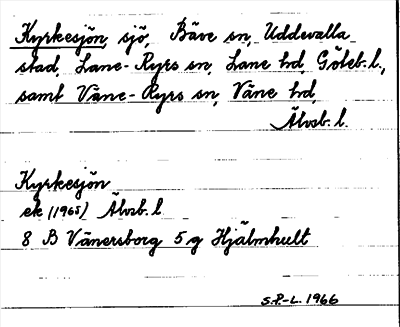 Kyrkesjön, sjö, Bäve sn, Uddevalla
stad, Lane-Ryrs sn, Lane hd, Göteb. l.,
samt Väne-Ryrs sn, Väne hd,
Älvsb. l.
Kyrkesjön
ek (1965) Älvsb. l.
8 B Vänersborg 5 g Hjälmhult
S.P-L. 1966